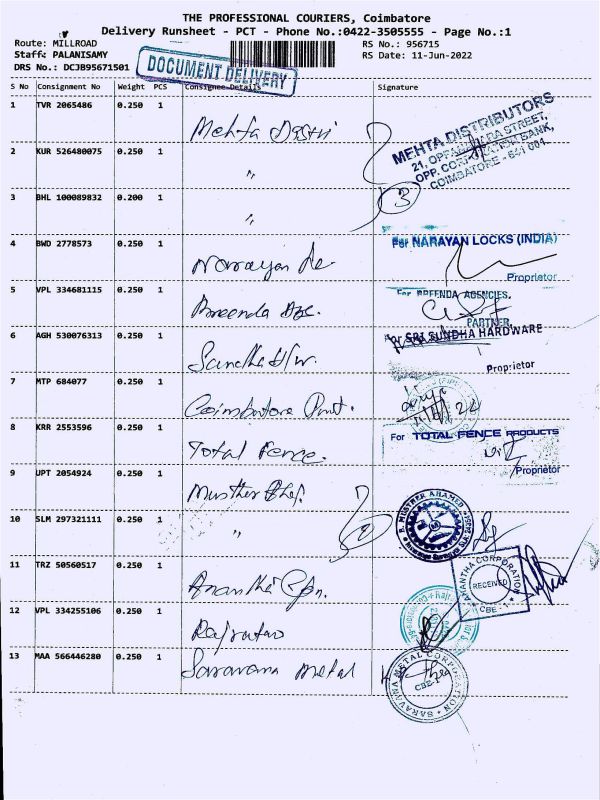 THE PROFESSIONAL COURIERS, Coimbatore
Delivery Runsheet - PCT - Phone No.:0422-3505555 - Page No.:1
Route: MILLROAD
RS No.: 956715
Staff: PALANISAMY
RS Date: 11-Jun-2022
DRS No.: DCJB95671501
DOCUMENT DELIVERY
S No Consignment No Weight PCS Consignee Details Signature
1 TVR 2065486 0.250 1 Mehta Distri
MEHTA DISTRIBUTORS
21, OPPANAKARA STREET,
OPP. CORPORATION BANK,
COIMBATORE - 641 001.
2 KUR 526480075 0.250 1 "
3
3 BHL 100089832 0.200 1 "
4 BWD 2778573 0.250 1 Narayan
For NARAYAN LOCKS (INDIA)
Proprietor
5 VPL 334681115 0.250 1 Preenda Age.
For PREENDA AGENCIES.
PARTNER
6 AGH 530076313 0.250 1 Sundha H/w.
For SRI SUNDHA HARDWARE
Proprietor
7 MTP 684077 0.250 1 Coimbatore Print.
11/6/22
8 KRR 2553596 0.250 1 Total Fence.
For TOTAL FENCE PRODUCTS
Proprietor
9 UPT 2054924 0.250 1 Musther
10 SLM 297321111 0.250 1 "
2
MUSTHER AHAMED
11 TRZ 50560517 0.250 1 Anantha Cpn.
ANANTHA CORPORATION
RECEIVED
CBE - 1
12 VPL 334255106 0.250 1 Rajratan
13 MAA 566446280 0.250 1 Saravana Metal
SARAVANA METAL CORPORATION
CBE